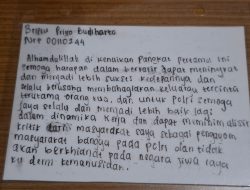 Bripda Priyo Budiharto
NRP 00110244
Alhamdulillah di kenaikan Pangkat pertama ini
semoga harapan dalam berkarir dapat meningkat
dan menjadi lebih sukses kedepannya, dan
selalu berusaha membahagiakan keluarga tercinta
terutama orang tua, dan untuk Polri semoga
jaya selalu dan menjadi lebih baik lagi
dalam dinamika kerja dan dapat meminimalisir
kritik dari masyarakat saya sebagai pengayom
masyarakat bangga pada Polri dan tidak
akan berkhianat pada negara jiwa raga
ku demi kemanusiaan.